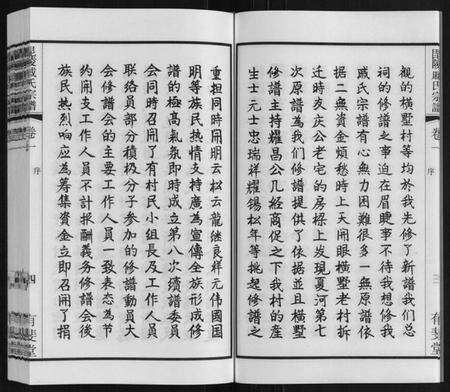 毘陵戚氏宗譜
卷一
序
三
有斐堂
觀的橫墅村等均於我先修了新譜我們總
祠的修譜之事迫在眉睫事不待我想修我
戚氏宗譜有心無力困難很多一無原譜依
據二無資金煩愁時上天開眼橫墅老村拆
迁時友庆公老宅的房樑上发現夏河第七
次原譜為我们修譜提供了依据並且橫墅
修譜主持耀昌公几經商促之下我村的産
生士元士忠瑞祥耀錫松年等挑起修譜之
重担同時開明云松云龍继良祥元偉國国
明等族民热情支持廣為宣傳全族形成修
譜的極高氣氛即時成立第八次續譜委員
会同時召開了有村民小組長及工作人員
联络員部分積极分子参加的修譜動員大
会修譜会的主要工作人員一致表态為節
约開支工作人員不計报酬義务修譜会後
族民热烈响应為筹集資金立即召開了捐
毘陵戚氏宗譜
卷一
序
四
有斐堂